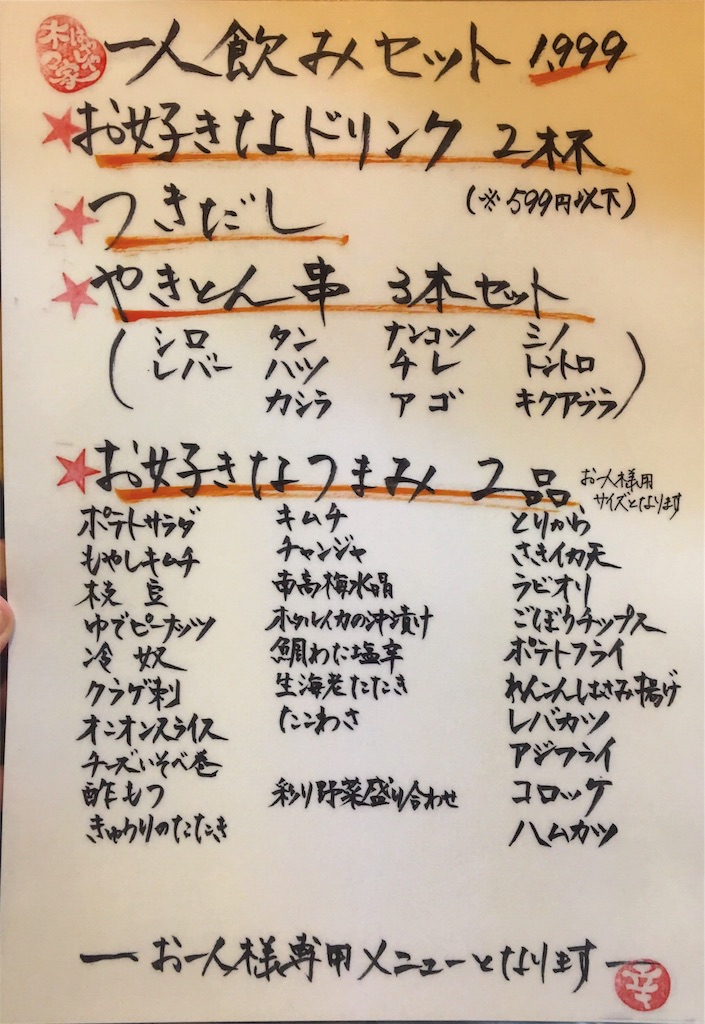 一人飲みセット 1,999
★お好きなドリンク 2杯
(※599円以下)
★つきだし
★やきとん串 3本セット
シロ タン ナンコツ ミノ
レバー ハツ チレ トントロ
カシラ アゴ キクアブラ
★お好きなつまみ 2品
お一人様用
サイズとなります
ポテトサラダ キムチ とりから
もやしキムチ チャンジャ さきイカ天
枝豆 南高梅水晶 ラビオリ
ゆでピーナッツ ホタルイカの沖漬け ごぼうチップス
冷奴 鯛わた塩辛 ポテトフライ
クラゲ刺 生海老たたき れんこんはさみ揚げ
オニオンスライス たこわさ レバカツ
チーズいそべ巻 アジフライ
酢もつ 彩り野菜盛り合わせ コロッケ
きゅうりのたたき ハムカツ
ー お一人様専用メニューとなります ー